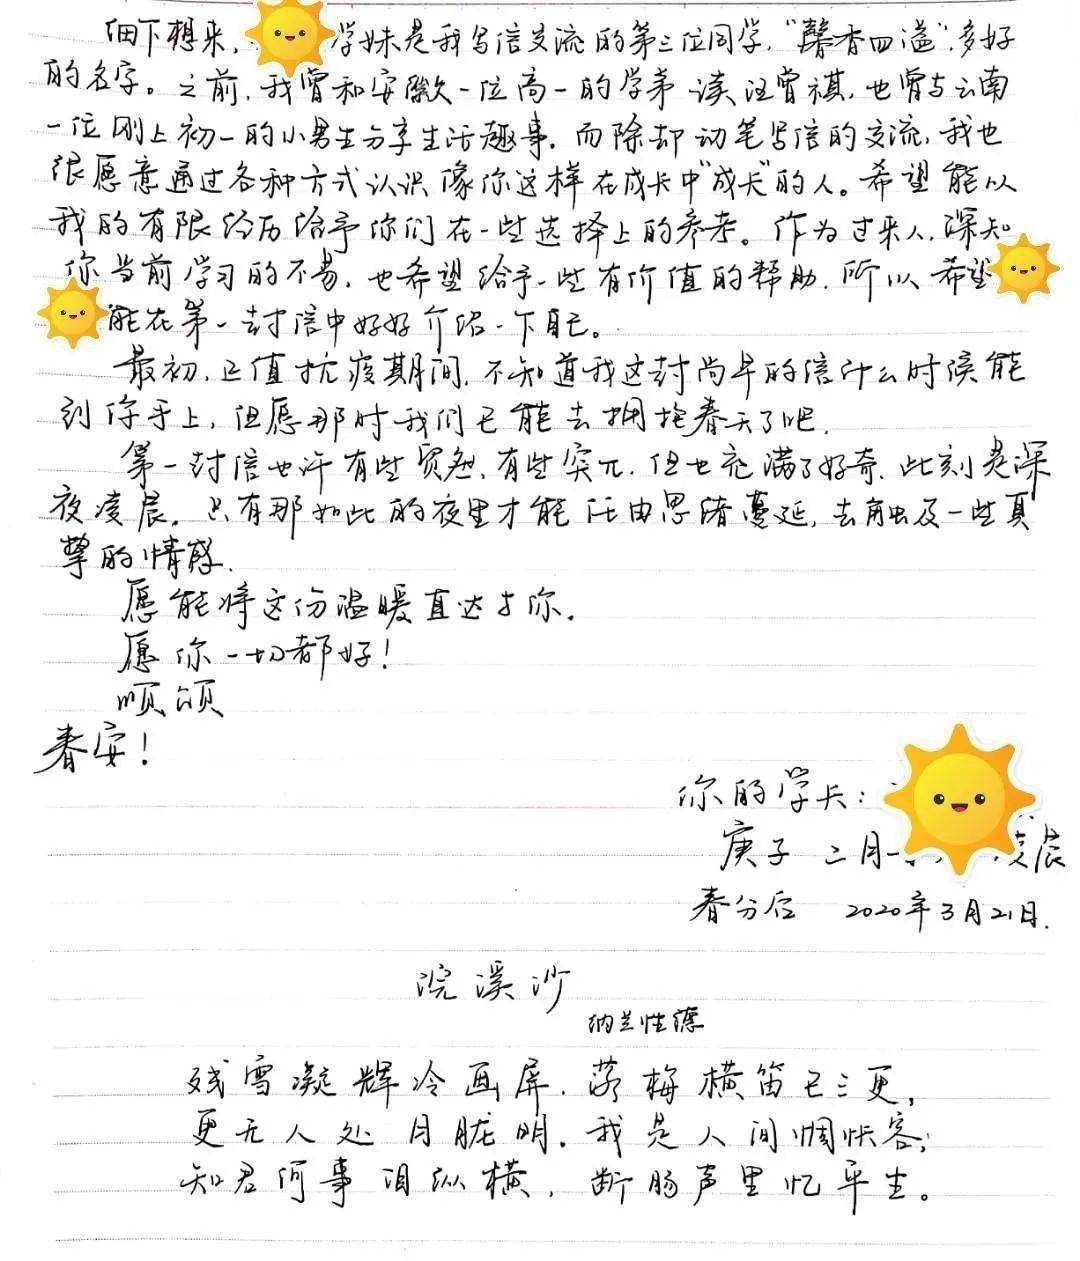 细下想来,学妹是我写信交流的第三位同学,“馨香四溢”,多好
的名字。之前,我曾和安徽一位高一的学弟读汪曾祺,也曾与云南
一位刚上初一的小男生分享生活趣事。而除却动笔写信的交流,我也
很愿意通过各种方式认识像你这样在成长中“成长”的人。希望能以
我的有限经历给予你们在一些选择上的参考。作为过来人,深知
你当前学习的不易,也希望给予一些有价值的帮助,所以希望
能在第一封信中好好介绍一下自己。
最初,正值抗疫期间,不知道我这封尚早的信什么时候能
到你手上,但愿那时我们已能去拥抱春天了吧.
第一封信也许有些贸然,有些突兀,但也充满了好奇,此刻是深
夜凌晨。只有那如此的夜里才能任由思绪蔓延,去触及一些真
挚的情感.
愿能将这份温暖直达于你.
愿你一切都好!
顺颂
春安!
你的学长:
庚子 二月 凌晨
春分后 2020年3月21日.
浣溪沙
纳兰性德
残雪凝辉冷画屏,落梅横笛已三更,
更无人处月胧明。我是人间惆怅客;
知君何事泪纵横,断肠声里忆平生。